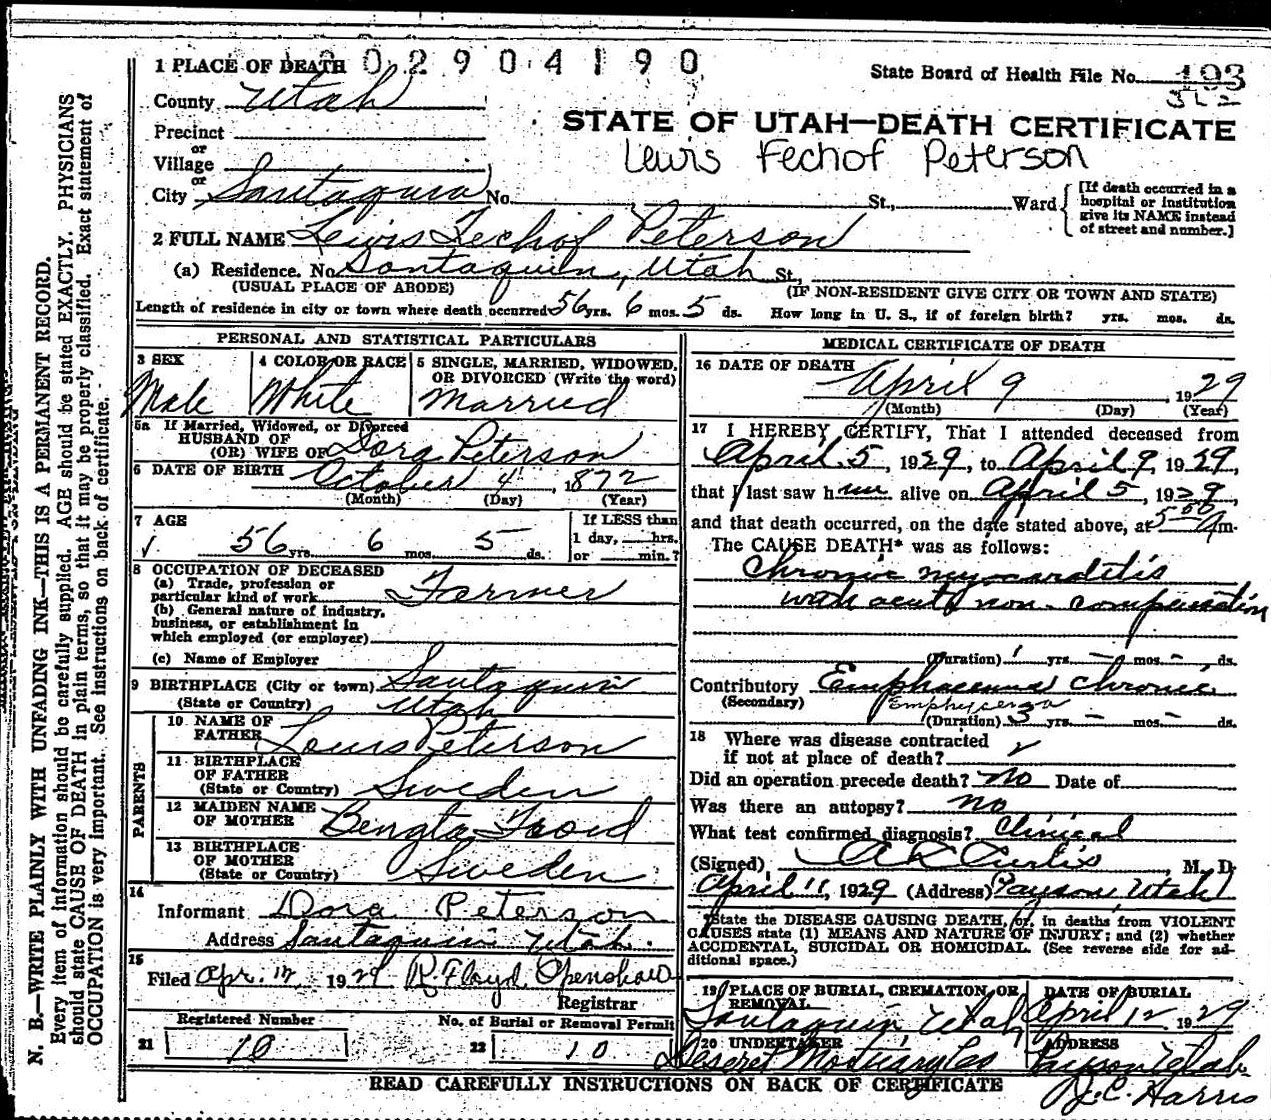 1 PLACE OF DEATH 02904190
State Board of Health File No. 193
County Utah
STATE OF UTAH—DEATH CERTIFICATE
Precinct
Lewis Fechof Peterson
or
Village
or
City Santaquin No. St., Ward
[If death occurred in a
hospital or institution
give its NAME instead
of street and number.]
2 FULL NAME Lewis Fechof Peterson
(a) Residence. No. Santaquin, Utah St.,
(USUAL PLACE OF ABODE) (IF NON-RESIDENT GIVE CITY OR TOWN AND STATE)
Length of residence in city or town where death occurred 56 yrs. 6 mos. 5 ds. How long in U. S., if of foreign birth? yrs. mos. ds.
PERSONAL AND STATISTICAL PARTICULARS
3 SEX
Male
4 COLOR OR RACE
White
5 SINGLE, MARRIED, WIDOWED,
OR DIVORCED (Write the word)
Married
5a If Married, Widowed, or Divorced
HUSBAND OF
(OR) WIFE OF Dora Peterson
6 DATE OF BIRTH October 4, 1872
(Month) (Day) (Year)
7 AGE
56 yrs. 6 mos. 5 ds.
If LESS than
1 day, hrs.
or min.?
8 OCCUPATION OF DECEASED
(a) Trade, profession or
particular kind of work Farmer
(b) General nature of industry,
business, or establishment in
which employed (or employer)
(c) Name of Employer
9 BIRTHPLACE (City or town) Santaquin
(State or Country) Utah
PARENTS
10 NAME OF
FATHER Louis Peterson
11 BIRTHPLACE
OF FATHER
(State or Country) Sweden
12 MAIDEN NAME
OF MOTHER Bengta
13 BIRTHPLACE
OF MOTHER
(State or Country) Sweden
14
Informant Dora Peterson
Address Santaquin Utah.
15
Filed Apr. 12 1929 R Floyd Openshaw
Registrar
Registered Number
21 10
No. of Burial or Removal Permit
22 10
MEDICAL CERTIFICATE OF DEATH
16 DATE OF DEATH
April 9 1929
(Month) (Day) (Year)
17 I HEREBY CERTIFY, That I attended deceased from
April 5, 1929, to April 9, 1929,
that I last saw him alive on April 5, 1929,
and that death occurred, on the date stated above, at m.
The CAUSE DEATH* was as follows:
Chronic myocarditis
with acute non-compensation
(Duration) 1 yrs. – mos. – ds.
Contributory Emphaseuma chronic.
(Secondary) Emphyzema
(Duration) 3 yrs. – mos. – ds.
18 Where was disease contracted
if not at place of death?
Did an operation precede death? No Date of
Was there an autopsy? no
What test confirmed diagnosis? Clinical
(Signed) A L Curtis M. D.
April 11, 1929 (Address) Payson Utah
*State the DISEASE CAUSING DEATH, or, in deaths from VIOLENT
CAUSES state (1) MEANS AND NATURE OF INJURY; and (2) whether
ACCIDENTAL, SUICIDAL OR HOMICIDAL. (See reverse side for ad-
ditional space.)
19 PLACE OF BURIAL, CREMATION, OR
REMOVAL
Santaquin Utah
DATE OF BURIAL
April 12 1929
20 UNDERTAKER
Deseret Mortuary Co
ADDRESS
Payson Utah
J.C. Harris
READ CAREFULLY INSTRUCTIONS ON BACK OF CERTIFICATE
N. B.—WRITE PLAINLY WITH UNFADING INK—THIS IS A PERMANENT RECORD.
Every item of information should be carefully supplied. AGE should be stated EXACTLY. PHYSICIANS
should state CAUSE OF DEATH in plain terms, so that it may be properly classified. Exact statement of
OCCUPATION is very important. See instructions on back of certificate.